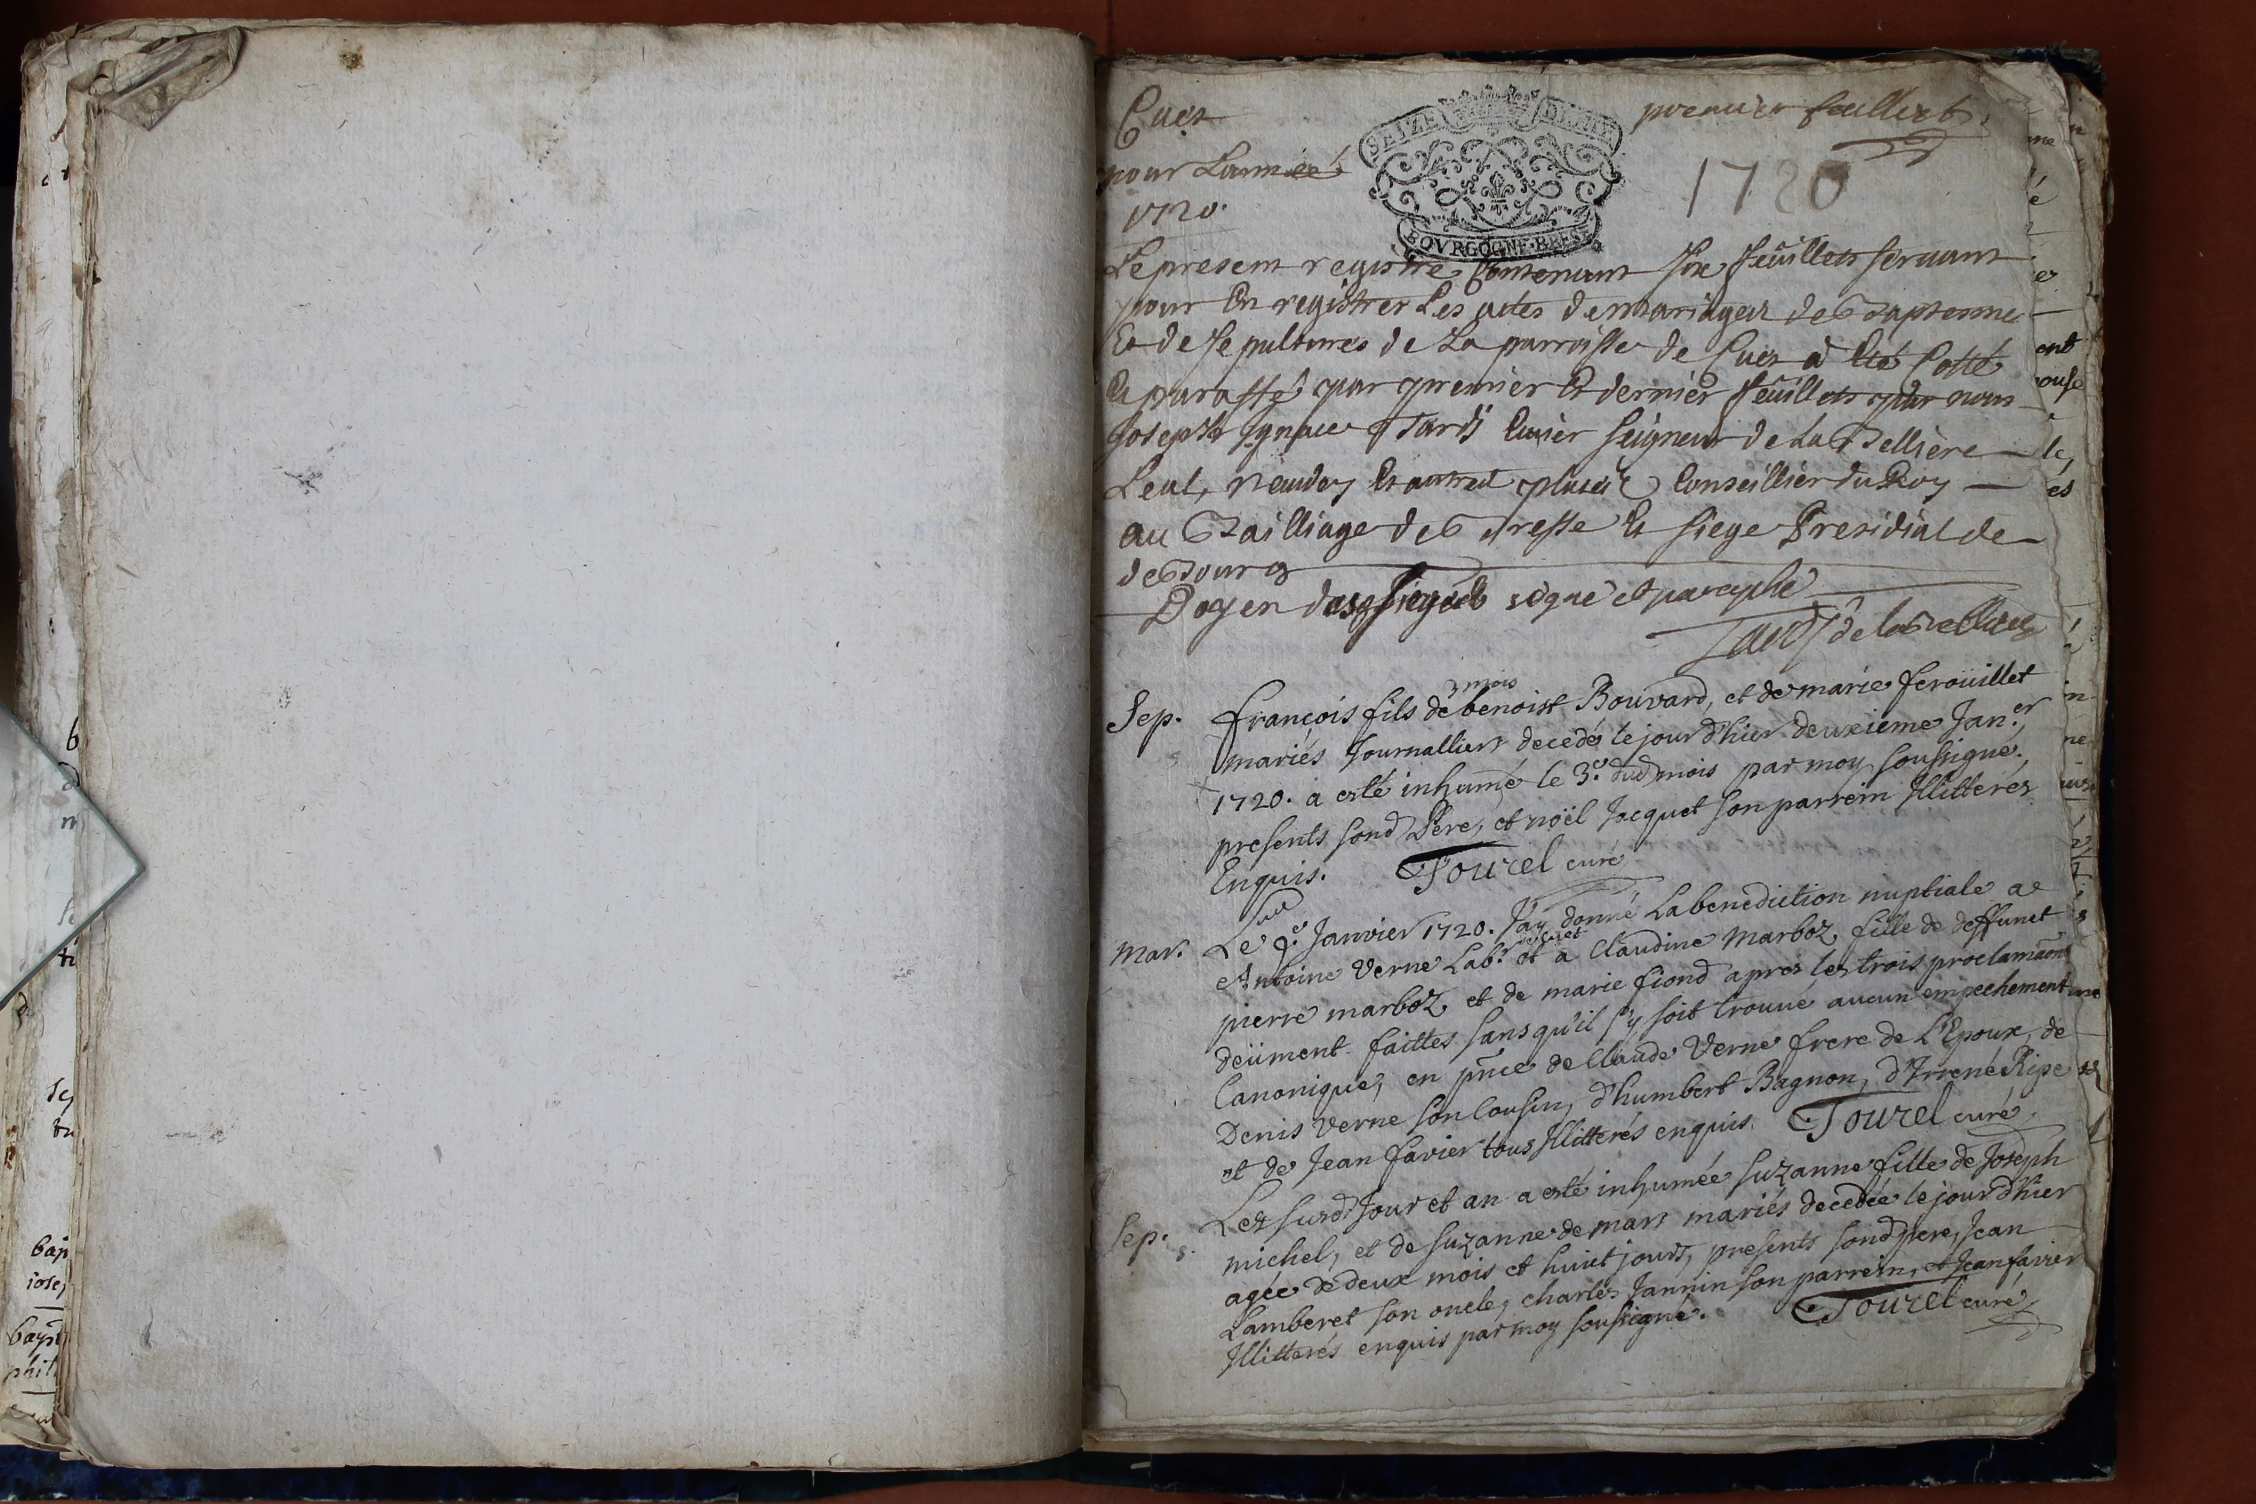 Cuet
premier feuillet
pour Lannée
1720
1720.
SEIZE DENIE
BOVRGOGNE·BRESSE
Le present registre Contenant six feüillets servant
pour En registrer Les actes de mariages de Baptesme
Et de sepultures de La parroisse de Cuet a Eté Cotté
Et paraffé par premier Et dernier feüillets par nous
Joseph Ignace Tardy Seigneur de La
Leal, Et autres places Conseillier du Roy
au Bailliage de Bresse Et siege Presidial de
de Bourg
Doyen signé et paraphé
Tardy de la
Sep. françois fils de benoist Bouvard, et de marie ferouillet
3 mois
mariés Journalliers decedé le jour d'hier deuxieme Jan.er
1720. a esté inhumé le 3.e dud mois par moy soussigné.
presents sond Pere, et noël Jacquet son parrein Illitterés
Enquis. Tourel curé
Mar. Le 9.e Janvier 1720. J'ay donné La benediction nuptiale a
Antoine Verne Lab.r et a Claudine Marboz fille de deffunct
pierre marboz et de marie fiond apres les trois proclamaõns
deüment faittes sans qu'il s'y soit trouvé aucun empechement
Canonique, en pñce de Claude Verne frere de L'Epoux, de
Denis Verne son Cousin, d'humbert Bagnon, d'Irrené Ripe
et de Jean favier tous Illitterés enquis. Tourel curé.
Sep. Les susd. Jour et an a esté inhumée suzanne fille de Joseph
michel, et de suzanne de mars mariés decedée le jour d'hier
agée de deux mois et huict jours, presents sond pere, Jean
Lamberet son oncle, charles Jannin son parrein, et Jean favier
Illitterés enquis par moy soussigné. Tourel curé